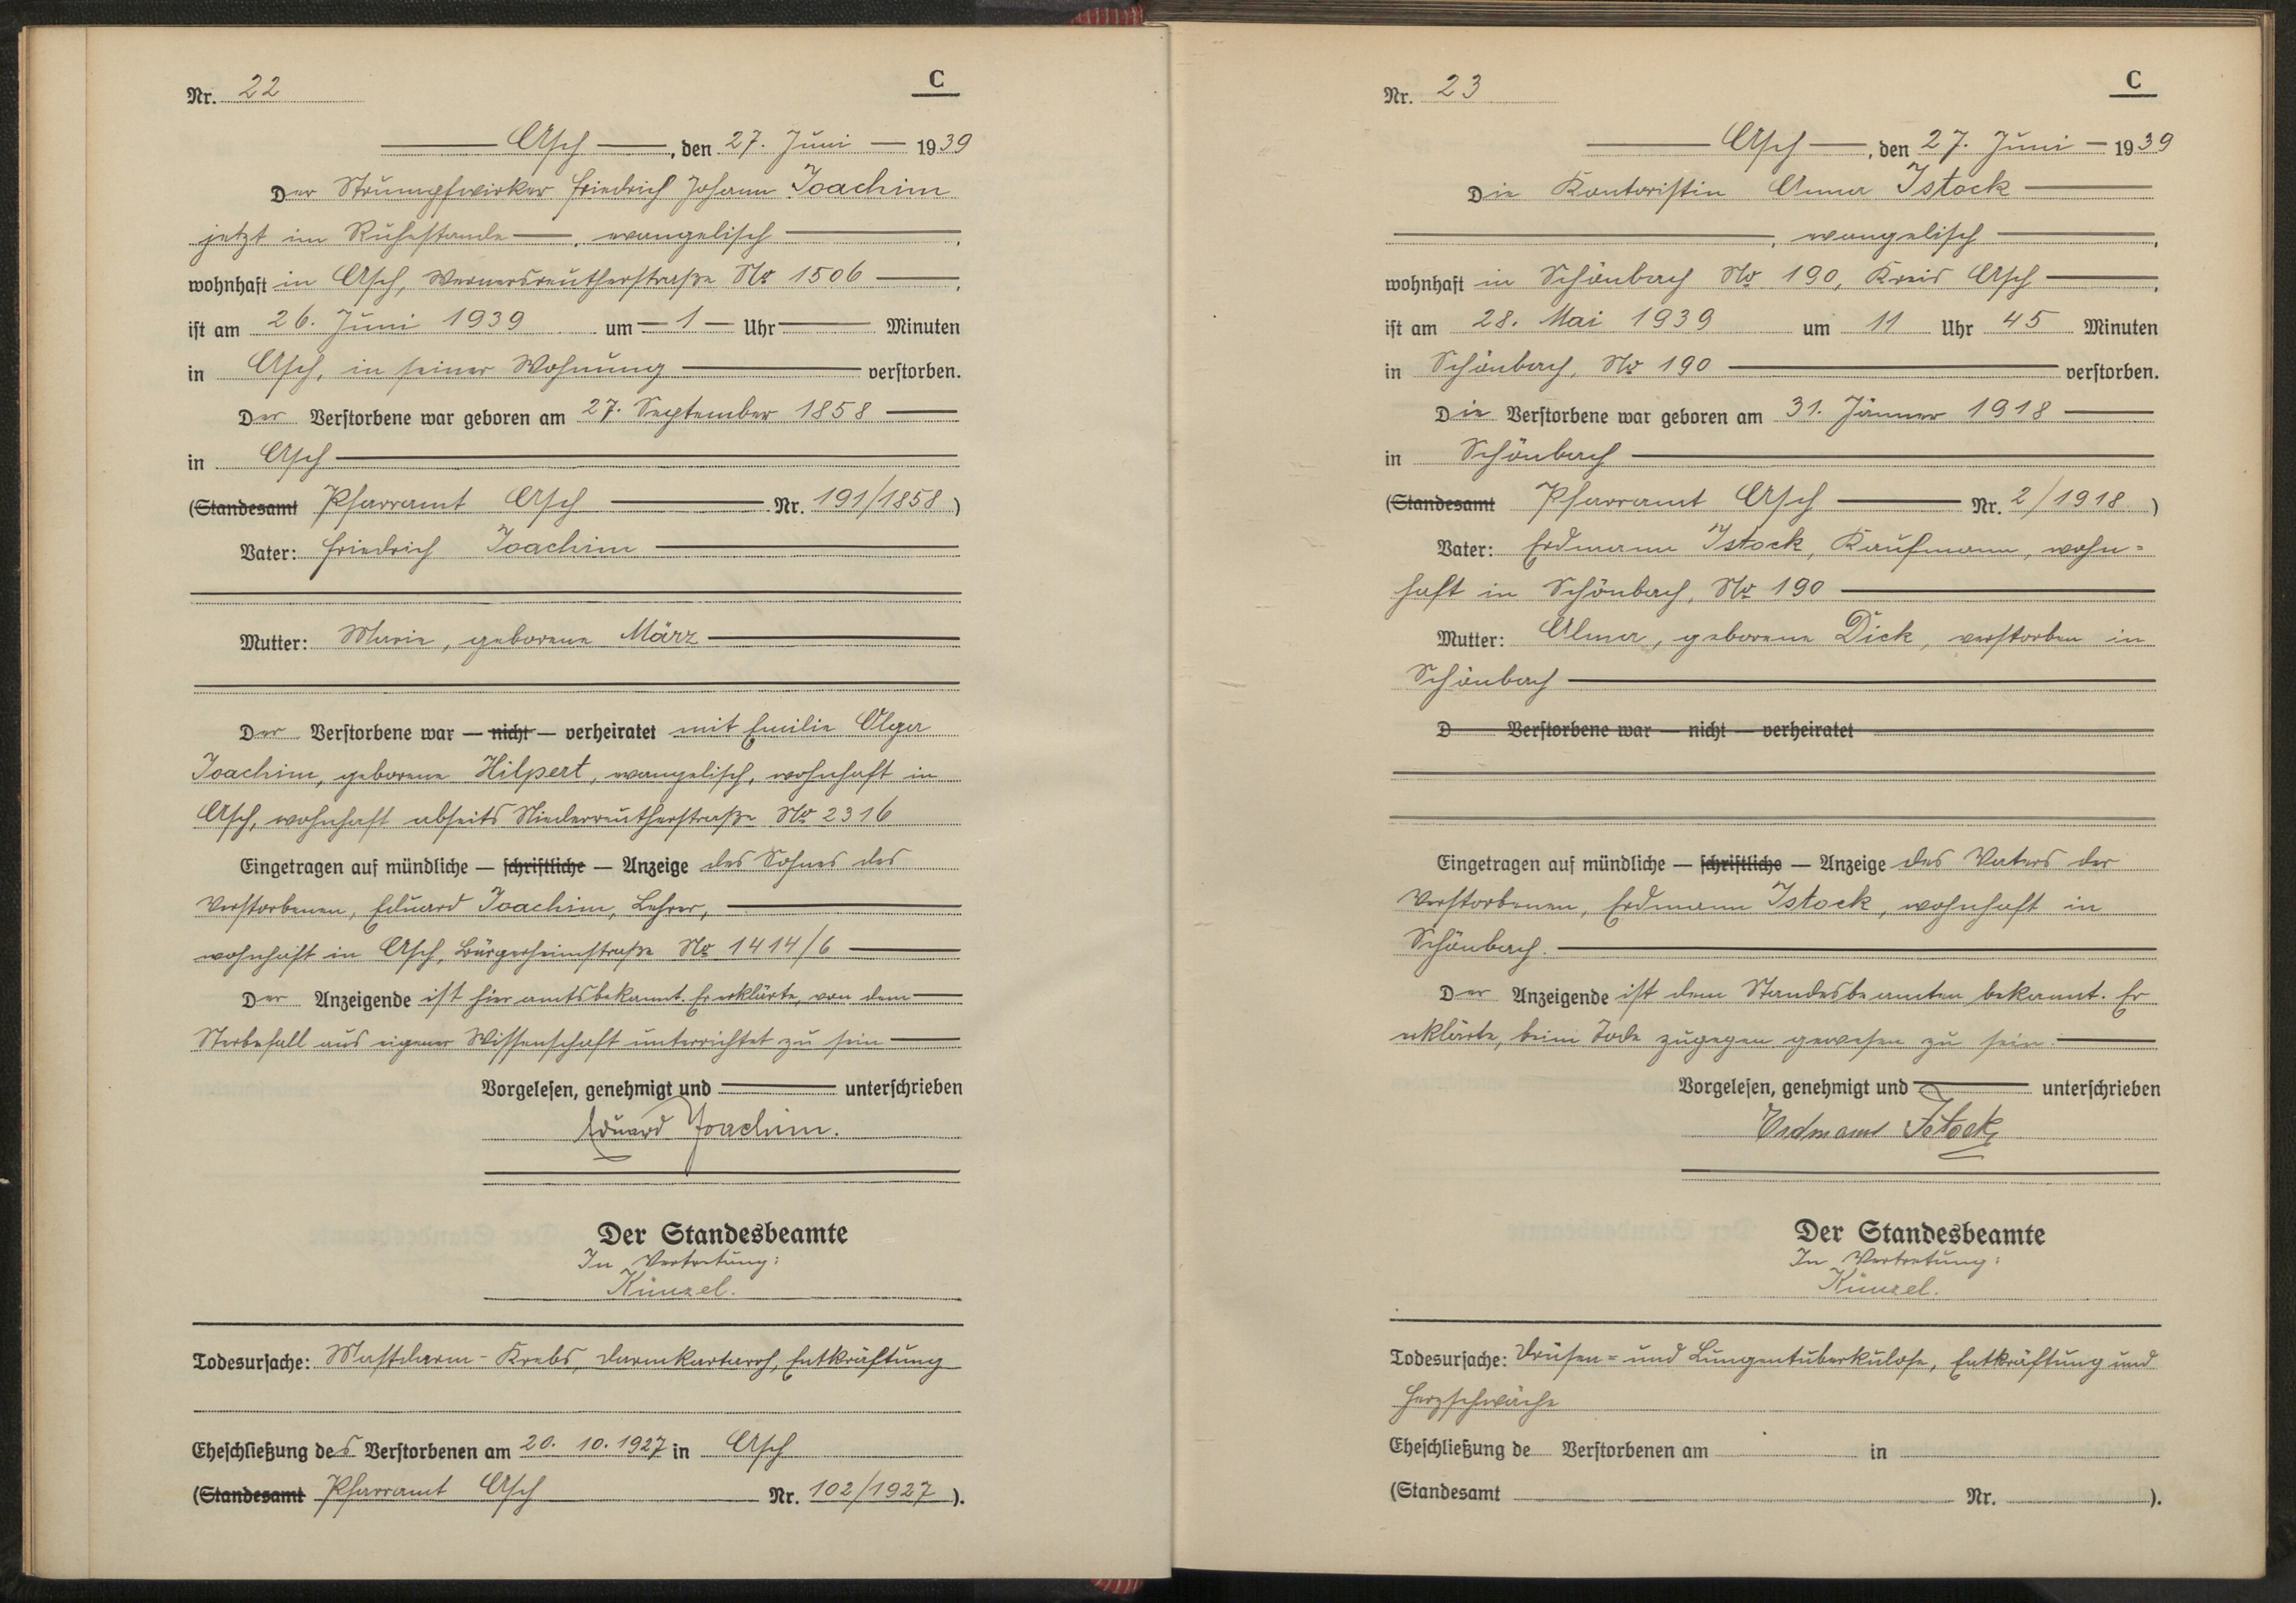 Nr. 22
C
Asch, den 27. Juni 1939
Der Strumpfwirker Friedrich Johann Joachim
jetzt im Ruhestande, evangelisch,
wohnhaft in Asch, Wernersreutherstraße No 1506,
ist am 26. Juni 1939 um 1 Uhr Minuten
in Asch, in seiner Wohnung verstorben.
Der Verstorbene war geboren am 27. September 1858
in Asch
(Standesamt Pfarramt Asch Nr. 191/1858)
Vater: Friedrich Joachim
Mutter: Marie, geborene März
Der Verstorbene war — nicht — verheiratet mit Emilie Olga
Joachim, geborene Hilpert, evangelisch, wohnhaft in
Asch, wohnhaft abseits Niederreutherstraße No 2316
Eingetragen auf mündliche — schriftliche — Anzeige des Sohnes des
Verstorbenen, Eduard Joachim, Lehrer,
wohnhaft in Asch, Bürgerheimstraße No 1414/6
Der Anzeigende ist hier amtsbekannt. Er erklärte, von dem
Sterbefall aus eigener Wissenschaft unterrichtet zu sein
Vorgelesen, genehmigt und unterschrieben
Eduard Joachim.
Der Standesbeamte
In Vertretung:
Künzel.
Todesursache: Mastdarm-Krebs, Darmkartarrh, Entkräftung
Eheschließung des Verstorbenen am 20. 10. 1927 in Asch
(Standesamt Pfarramt Asch Nr. 102/1927).
Nr. 23
C
Asch, den 27. Juni 1939
Die Kontoristin Anna Istock
, evangelisch,
wohnhaft in Schönbach No 190, Kreis Asch,
ist am 28. Mai 1939 um 11 Uhr 45 Minuten
in Schönbach, No 190 verstorben.
Die Verstorbene war geboren am 31. Jänner 1918
in Schönbach
(Standesamt Pfarramt Asch Nr. 2/1918)
Vater: Erdmann Istock, Kaufmann, wohn=
haft in Schönbach, No 190
Mutter: Alma, geborene Dick, verstorben in
Schönbach
D Verstorbene war — nicht — verheiratet
Eingetragen auf mündliche — schriftliche — Anzeige des Vaters der
Verstorbenen, Erdmann Istock, wohnhaft in
Schönbach.
Der Anzeigende ist dem Standesbeamten bekannt. Er
erklärte, beim Tode zugegen gewesen zu sein.
Vorgelesen, genehmigt und unterschrieben
Erdmann Istock
Der Standesbeamte
In Vertretung:
Künzel.
Todesursache: Drüsen= und Lungentuberkulose, Entkräftung und
Herzschwäche
Eheschließung de Verstorbenen am in
(Standesamt Nr. ).